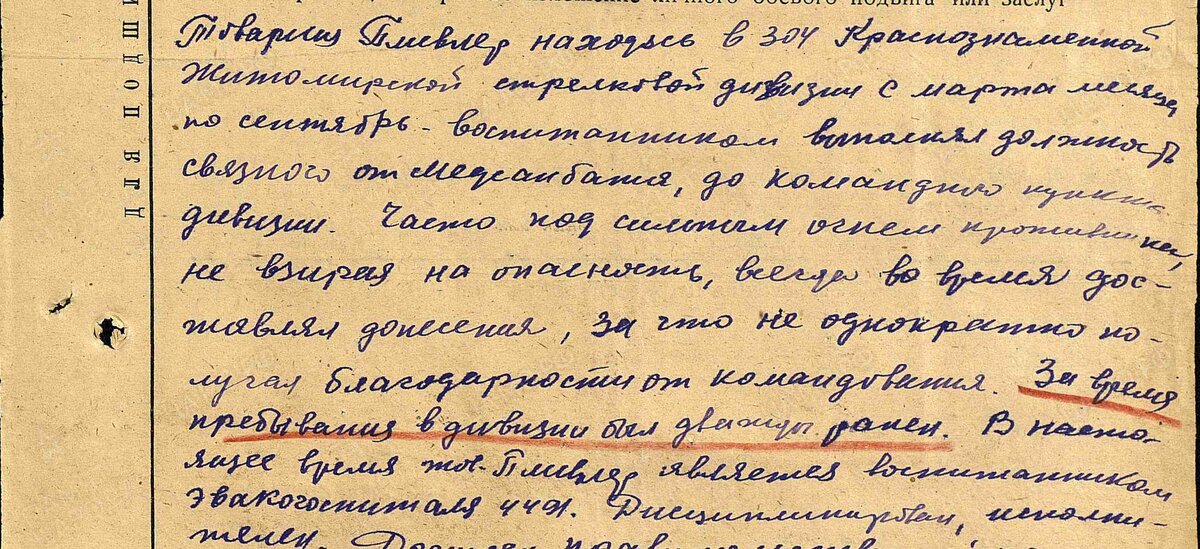 личного боевого подвига или заслуг
ДЛЯ ПОДШИ
Товарищ Пмевлер находясь в 304 Краснознаменной
Житомирской стрелковой дивизии с марта месяца
по сентябрь - воспитанником выполнял должность
связного от Медсанбата, до командного пункта
дивизии. Часто под сильным огнем противника,
не взирая на опасность, всегда во время дос-
тавлял донесения, за что не однократно по-
лучал благодарности от командования. За время
пребывания в дивизии был дважды ранен. В насто-
ящее время тов. Пмевлер является воспитанником
эвакогоспиталя 4491. Дисциплинирован, исполни-
телен.